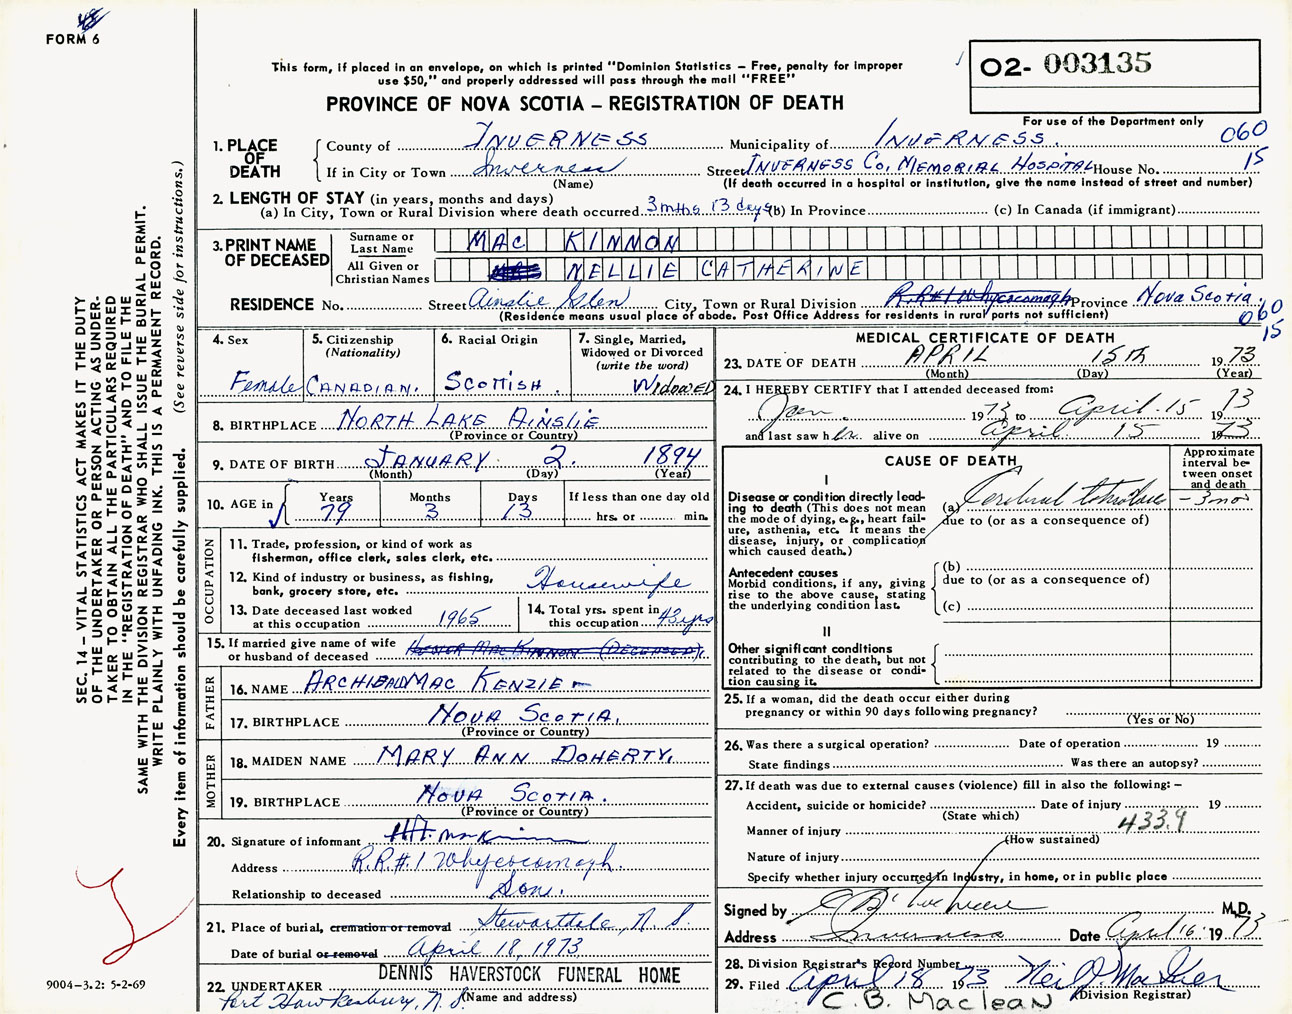 48
FORM 6
This form, if placed in an envelope, on which is printed "Dominion Statistics – Free, penalty for improper
use $50," and properly addressed will pass through the mail "FREE"
PROVINCE OF NOVA SCOTIA – REGISTRATION OF DEATH
O2- 003135
For use of the Department only
060
15
1. PLACE OF DEATH
County of INVERNESS Municipality of INVERNESS.
If in City or Town Inverness Street INVERNESS CO. MEMORIAL HOSPITAL House No.
(Name) (If death occurred in a hospital or institution, give the name instead of street and number)
2. LENGTH OF STAY (in years, months and days)
(a) In City, Town or Rural Division where death occurred 3 mths 13 days (b) In Province (c) In Canada (if immigrant)
3. PRINT NAME OF DECEASED
Surname or Last Name MAC KINNON
All Given or Christian Names MRS NELLIE CATHERINE
RESIDENCE No. Street Ainslie Glen City, Town or Rural Division R.R#1 Whycocomagh Province Nova Scotia.
(Residence means usual place of abode. Post Office Address for residents in rural parts not sufficient)
060
15
4. Sex
Female
5. Citizenship
(Nationality)
CANADIAN.
6. Racial Origin
SCOTTISH.
7. Single, Married,
Widowed or Divorced
(write the word)
WIDOWED
8. BIRTHPLACE NORTH LAKE AINSLIE
(Province or Country)
9. DATE OF BIRTH JANUARY 2. 1894
(Month) (Day) (Year)
10. AGE in
Years Months Days If less than one day old
79 3 13 hrs. or min.
OCCUPATION
11. Trade, profession, or kind of work as
fisherman, office clerk, sales clerk, etc.
12. Kind of industry or business, as fishing,
bank, grocery store, etc. Housewife
13. Date deceased last worked
at this occupation 1965
14. Total yrs. spent in
this occupation 43 yrs
15. If married give name of wife
or husband of deceased MACKINNON (DECEASED).
FATHER
16. NAME ARCHIBALD MAC KENZIE
17. BIRTHPLACE NOVA SCOTIA.
(Province or Country)
MOTHER
18. MAIDEN NAME MARY ANN DOHERTY.
19. BIRTHPLACE NOVA SCOTIA.
(Province or Country)
20. Signature of informant
Address R.R.#.1 Whycocomagh.
Relationship to deceased Son.
21. Place of burial, cremation or removal Stewartdale, N.S.
Date of burial or removal April 18, 1973
DENNIS HAVERSTOCK FUNERAL HOME
22. UNDERTAKER
Port Hawkesbury, N.S. (Name and address)
MEDICAL CERTIFICATE OF DEATH
23. DATE OF DEATH APRIL 15th 1973
(Month) (Day) (Year)
24. I HEREBY CERTIFY that I attended deceased from:
Jan. 1973 to April 15 1973
and last saw her alive on April 15 1973
CAUSE OF DEATH
Approximate
interval be-
tween onset
and death
I
Disease or condition directly lead-
ing to death (This does not mean
the mode of dying, e.g., heart fail-
ure, asthenia, etc. It means the
disease, injury, or complication
which caused death.)
(a) Cerebral 3 mo
due to (or as a consequence of)
Antecedent causes
Morbid conditions, if any, giving
rise to the above cause, stating
the underlying condition last.
(b)
due to (or as a consequence of)
(c)
II
Other significant conditions
contributing to the death, but not
related to the disease or condi-
tion causing it.
25. If a woman, did the death occur either during
pregnancy or within 90 days following pregnancy?
(Yes or No)
26. Was there a surgical operation? Date of operation 19
State findings Was there an autopsy?
27. If death was due to external causes (violence) fill in also the following: –
Accident, suicide or homicide? Date of injury 19
(State which)
Manner of injury 433.9
(How sustained)
Nature of injury
Specify whether injury occurred in industry, in home, or in public place
Signed by M.D.
Address Inverness Date April 16 1973
28. Division Registrar's Record Number
29. Filed April 18 1973
(Division Registrar)
C. B. Maclean
SEC. 14 – VITAL STATISTICS ACT MAKES IT THE DUTY
OF THE UNDERTAKER OR PERSON ACTING AS UNDER-
TAKER TO OBTAIN ALL THE PARTICULARS REQUIRED
IN THE "REGISTRATION OF DEATH" AND TO FILE THE
SAME WITH THE DIVISION REGISTRAR WHO SHALL ISSUE THE BURIAL PERMIT.
WRITE PLAINLY WITH UNFADING INK. THIS IS A PERMANENT RECORD.
Every item of information should be carefully supplied. (See reverse side for instructions.)
9004-3.2: 5-2-69